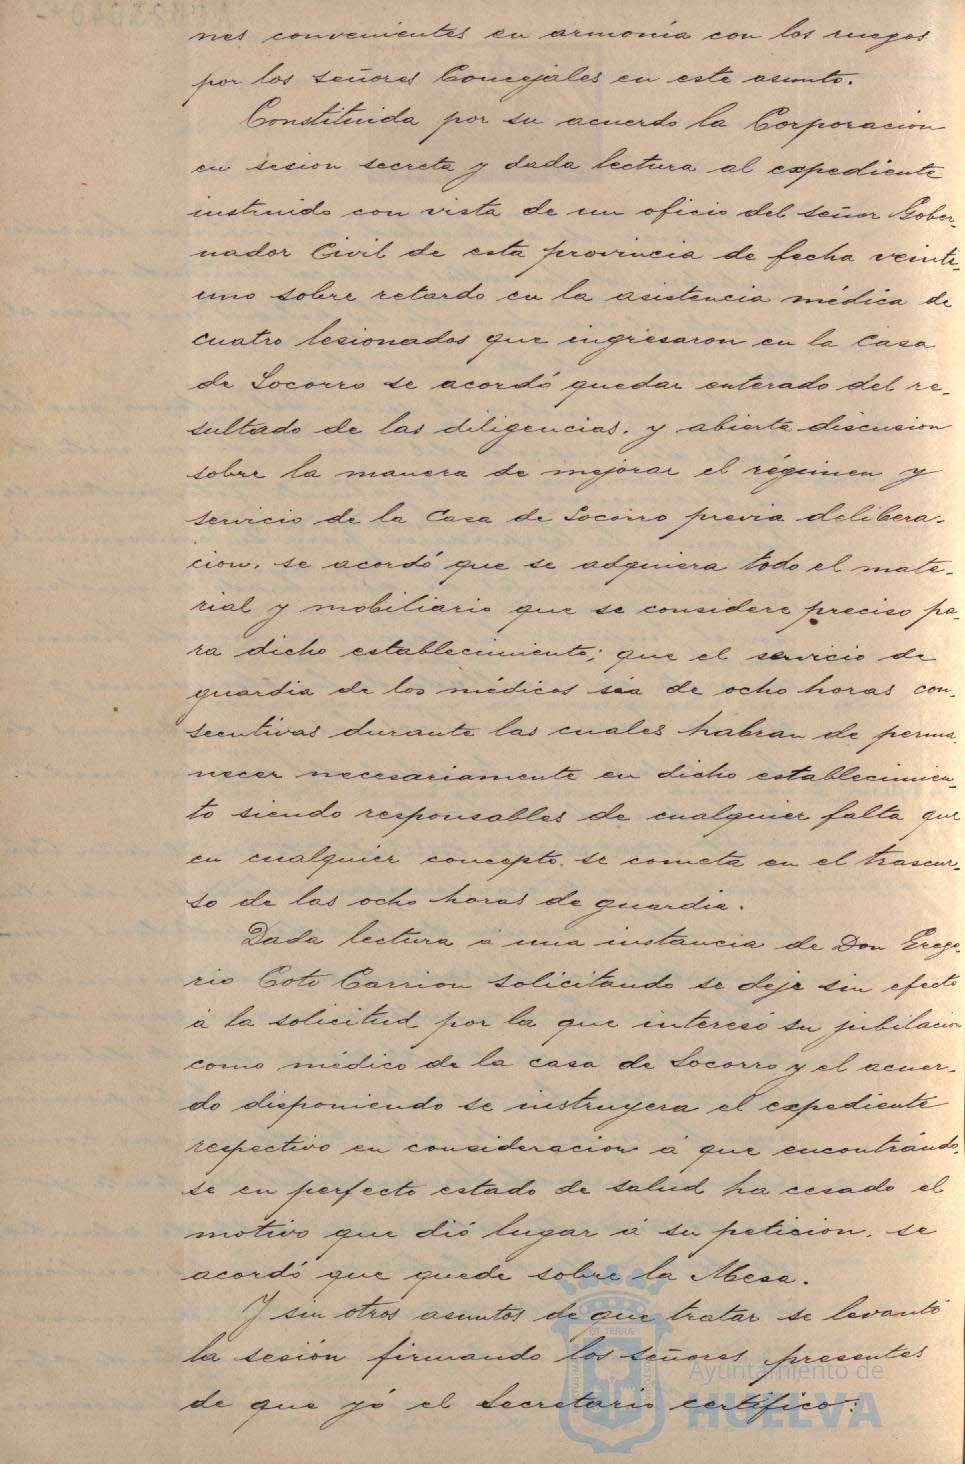 nes convenientes en armonía con los ruegos
por los señores Concejales en este asunto.
Constituida por su acuerdo la Corporacion
en sesion secreta y dada lectura al expediente
instruido con vista de un oficio del señor Gober-
nador Civil de esta provincia de fecha veinte-
uno sobre retardo en la asistencia médica de
cuatro lesionados que ingresaron en la Casa
de Socorro se acordó quedar enterado del re-
sultado de las diligencias. y abierta discusion
sobre la manera de mejorar el régimen y
servicio de la Casa de Socorro previa delibera-
cion. se acordó que se adquiera todo el mate-
rial y mobiliario que se considere preciso pa-
ra dicho establecimiento; que el servicio de
guardia de los médicos sea de ocho horas con-
secutivas durante las cuales habran de perma-
necer necesariamente en dicho establecimien-
to siendo responsables de cualquier falta que
en cualquier concepto se cometa en el trascur-
so de las ocho horas de guardia.
Dada lectura á una instancia de Don Grego-
rio Coto Carrion solicitando se deje sin efecto
á la solicitud por la que interesó su jubilacion
como médico de la casa de Socorro y el acuer-
do disponiendo se instruyera el expediente
respectivo en consideracion á que encontrándo-
se en perfecto estado de salud ha cesado el
motivo que dió lugar á su peticion. se
acordó que quede sobre la Mesa.
Y sin otros asuntos de que tratar se levantó
la sesión firmando los señores presentes
de que yó el Secretario certifico:
Ayuntamiento de
HUELVA